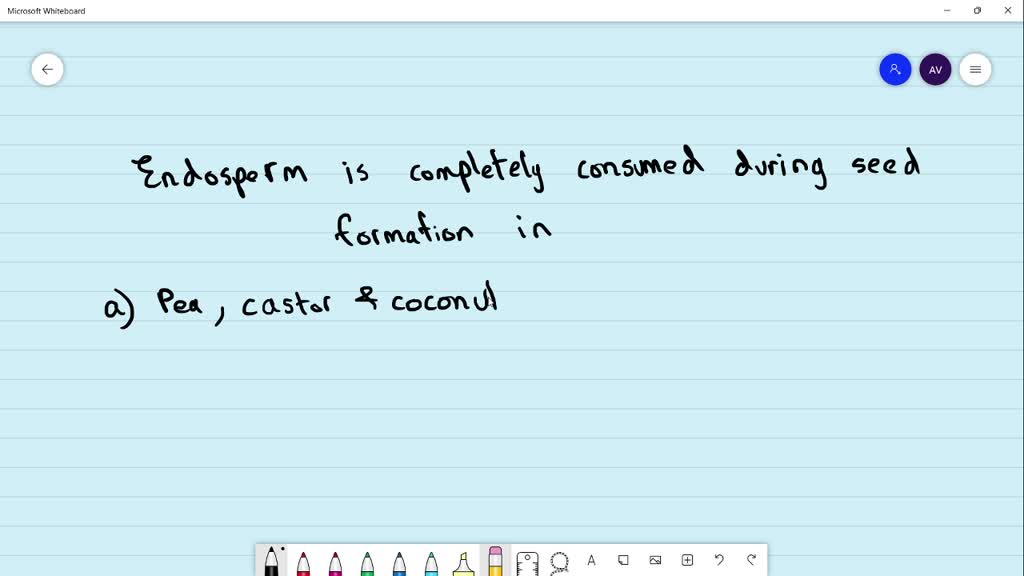 Microsoft Whiteboard
AV
Endosperm is completely consumed during seed
formation in
a) Pea, castor & coconut
A